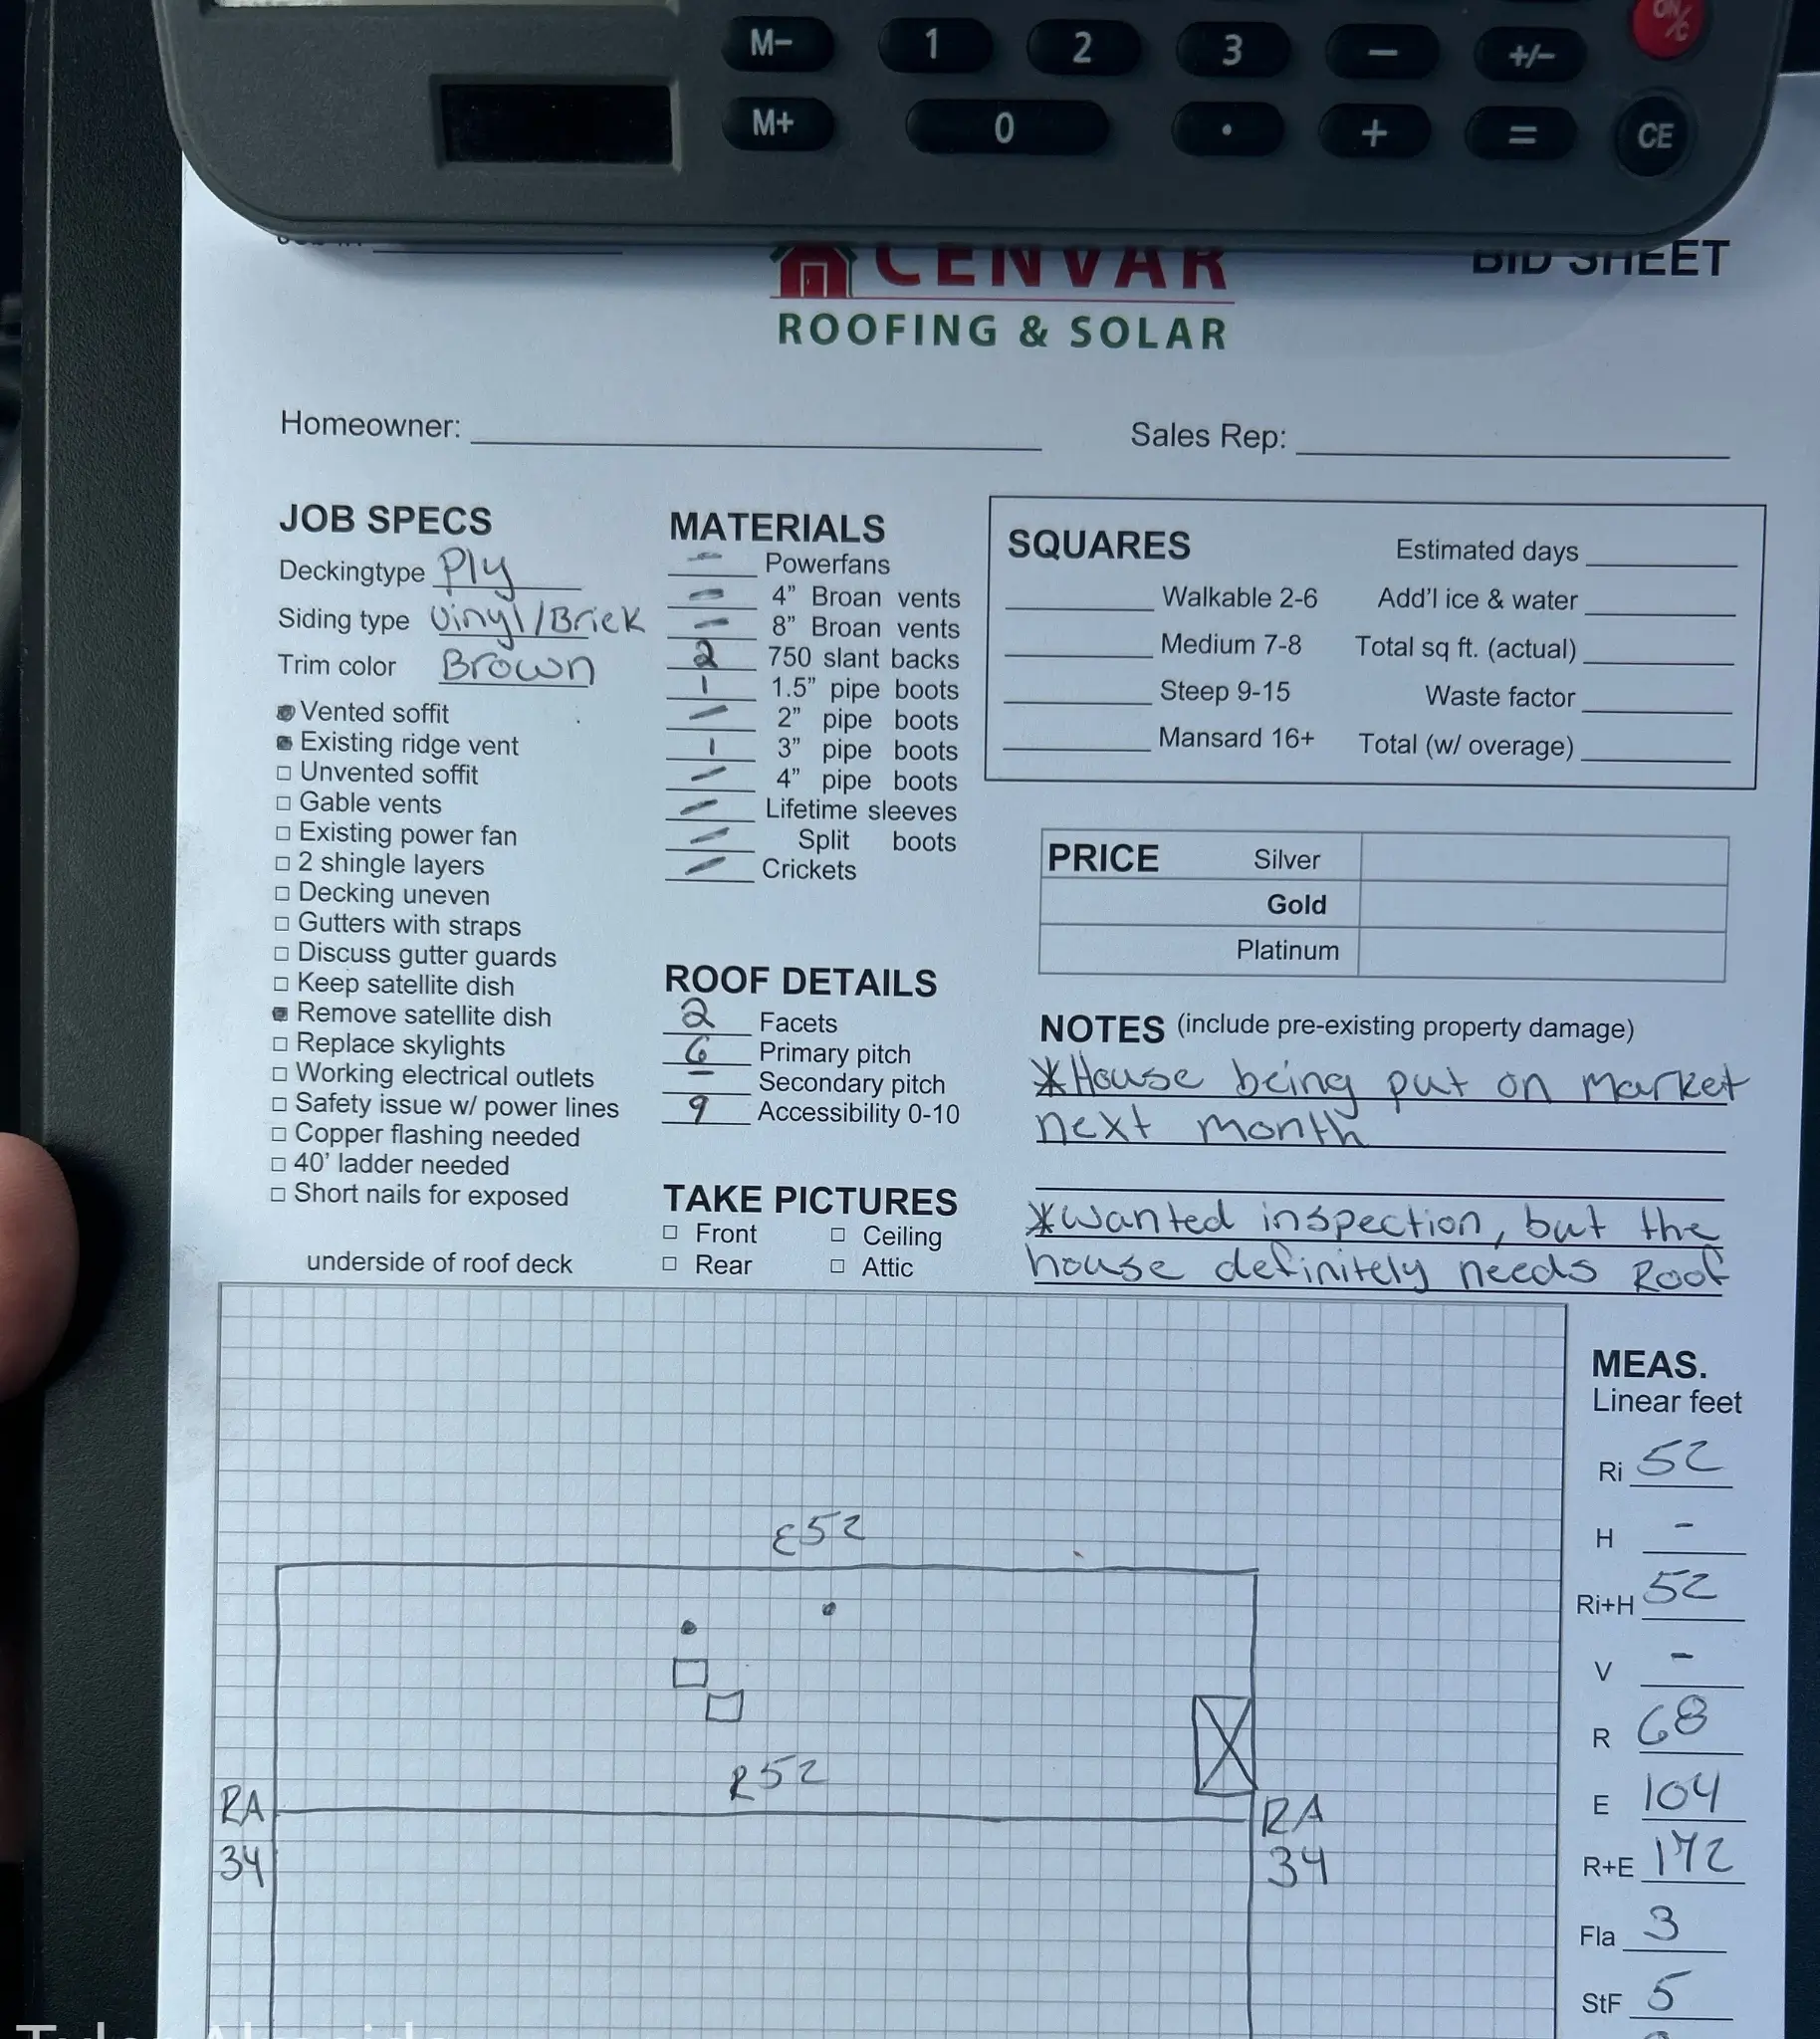 M−
1
2
3
−
+/−
ON/C
M+
0
.
+
=
CE
CENVAR
ROOFING & SOLAR
BID SHEET
Homeowner:
Sales Rep:
JOB SPECS
Deckingtype Ply
Siding type Vinyl/Brick
Trim color Brown
Vented soffit
Existing ridge vent
Unvented soffit
Gable vents
Existing power fan
2 shingle layers
Decking uneven
Gutters with straps
Discuss gutter guards
Keep satellite dish
Remove satellite dish
Replace skylights
Working electrical outlets
Safety issue w/ power lines
Copper flashing needed
40' ladder needed
Short nails for exposed
underside of roof deck
MATERIALS
– Powerfans
– 4” Broan vents
– 8” Broan vents
2 750 slant backs
1 1.5” pipe boots
– 2” pipe boots
1 3” pipe boots
– 4” pipe boots
– Lifetime sleeves
– Split boots
– Crickets
ROOF DETAILS
2 Facets
6 Primary pitch
– Secondary pitch
9 Accessibility 0-10
TAKE PICTURES
Front
Ceiling
Rear
Attic
SQUARES
Walkable 2-6
Medium 7-8
Steep 9-15
Mansard 16+
Estimated days
Add'l ice & water
Total sq ft. (actual)
Waste factor
Total (w/ overage)
PRICE Silver
Gold
Platinum
NOTES (include pre-existing property damage)
*House being put on market
next month
*Wanted inspection, but the
house definitely needs Roof
E52
R52
RA
34
RA
34
MEAS.
Linear feet
Ri 52
H -
Ri+H 52
V -
R 68
E 104
R+E 172
Fla 3
StF 5